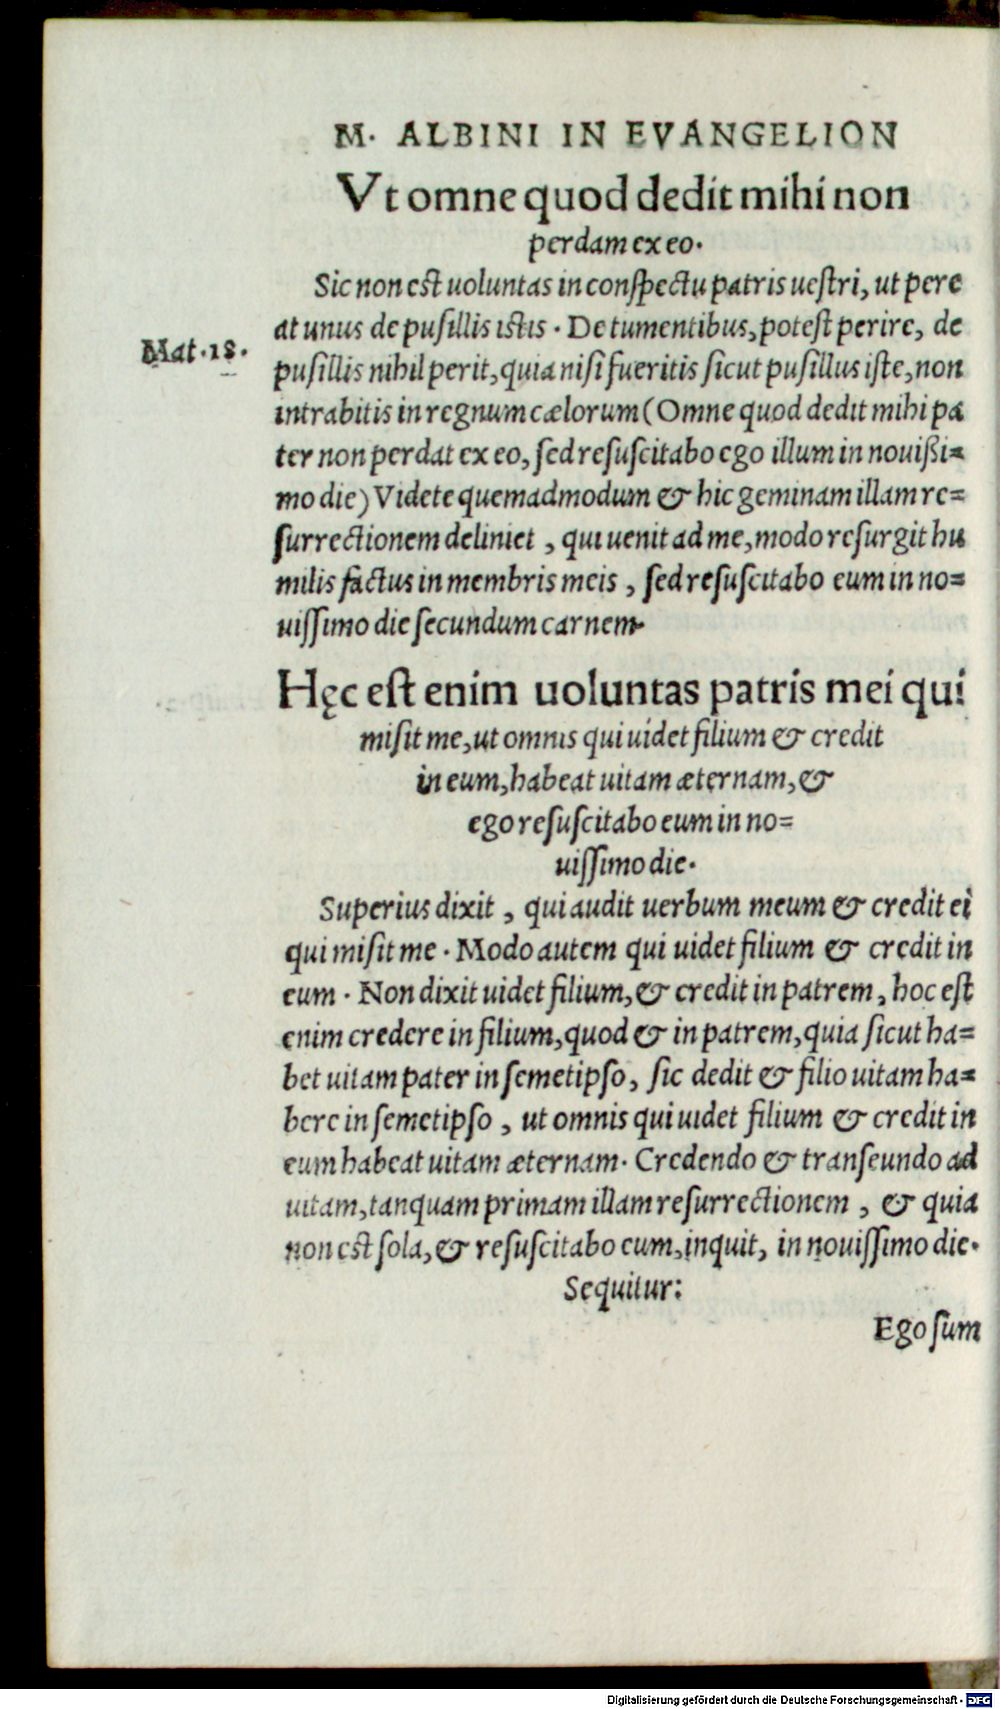 M. ALBINI IN EVANGELION
Vt omne quod dedit mihi non
perdam ex eo.
Sic non est uoluntas in conspectu patris uestri, ut pere
at unus de pusillis istis . De tumentibus, potest perire, de
Mat.18.
pusillis nihil perit, quia nisi fueritis sicut pusillus iste, non
intrabitis in regnum cælorum (Omne quod dedit mihi pa
ter non perdat ex eo, sed resuscitabo ego illum in nouißi=
mo die) Videte quemadmodum & hic geminam illam re=
surrectionem deliniet , qui uenit ad me, modo resurgit hu
milis factus in membris meis , sed resuscitabo eum in no=
uissimo die secundum carnem.
Hęc est enim uoluntas patris mei qui
misit me, ut omnis qui uidet filium & credit
in eum, habeat uitam æternam, &
ego resuscitabo eum in no=
uissimo die.
Superius dixit , qui audit uerbum meum & credit ei
qui misit me . Modo autem qui uidet filium & credit in
eum . Non dixit uidet filium, & credit in patrem, hoc est
enim credere in filium, quod & in patrem, quia sicut ha=
bet uitam pater in semetipso, sic dedit & filio uitam ha=
bere in semetipso , ut omnis qui uidet filium & credit in
eum habeat uitam æternam. Credendo & transeundo ad
uitam, tanquam primam illam resurrectionem , & quia
non est sola, & resuscitabo eum, inquit, in nouissimo die.
Sequitur:
Ego sum
Digitalisierung gefördert durch die Deutsche Forschungsgemeinschaft - DFG